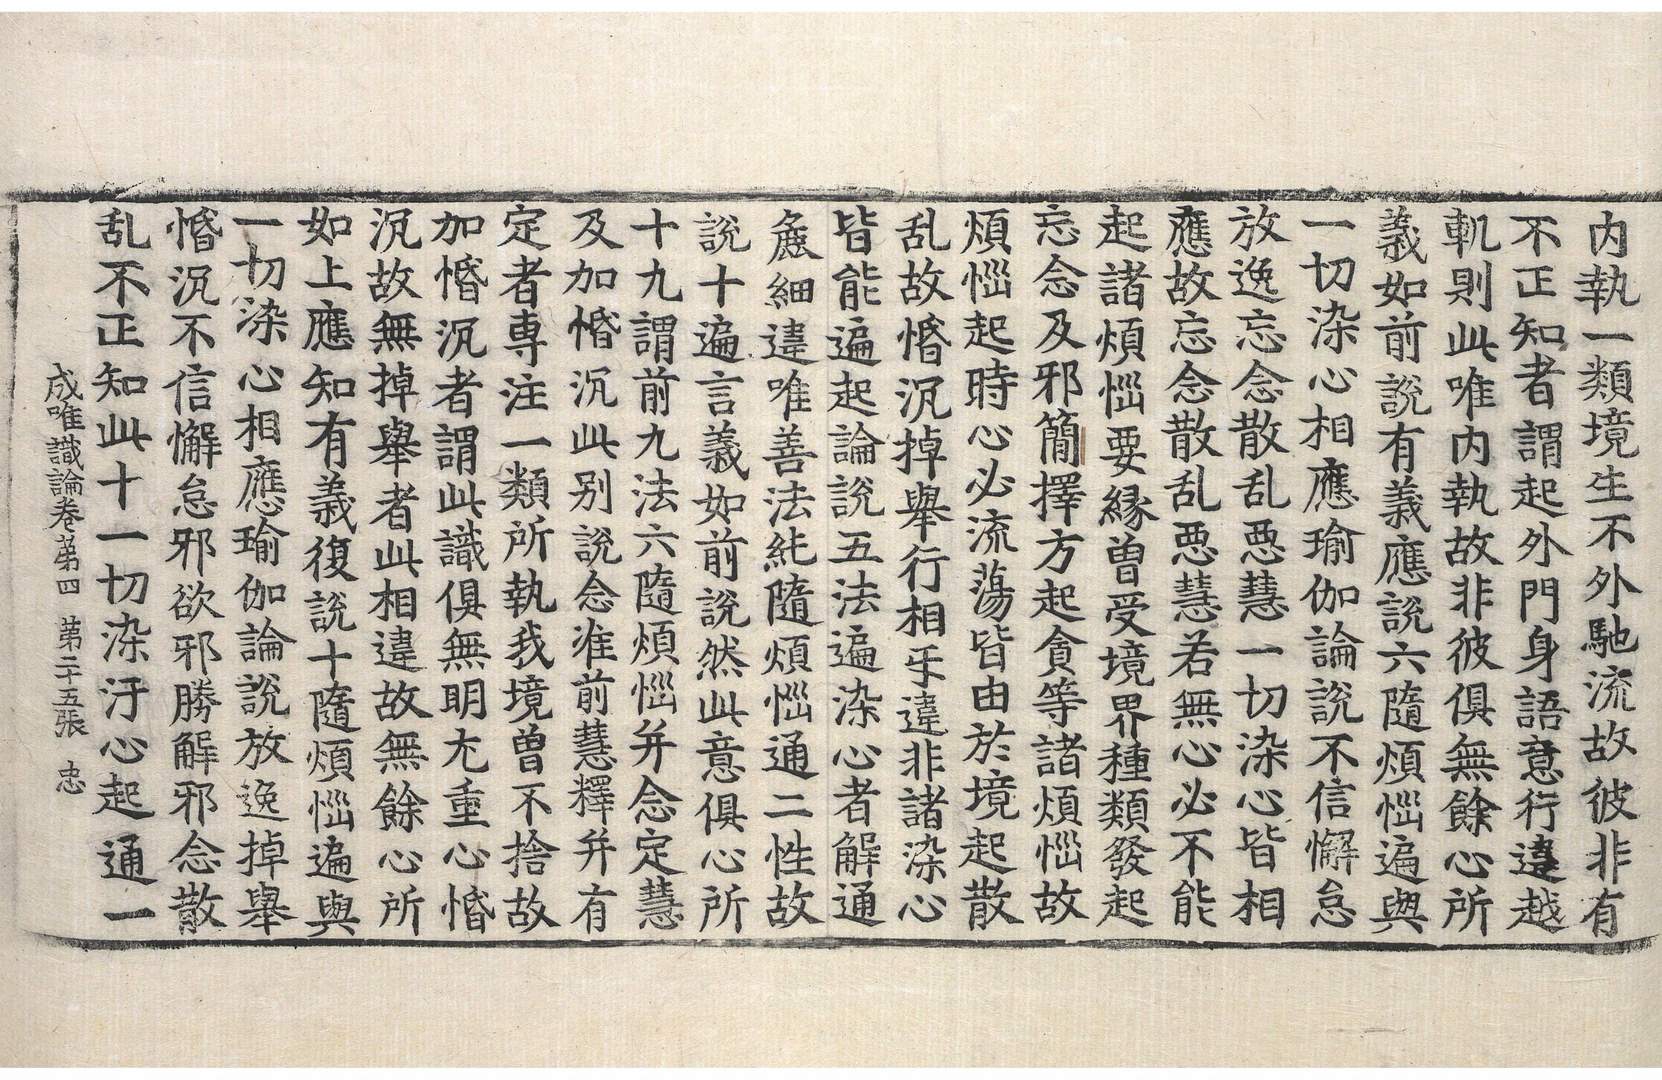 内執一類境生不外馳流故彼非有
不正知者謂起外門身語意行違越
軌則此唯内執故非彼俱無餘心所
義如前說有義應說六隨煩惱遍與
一切染心相應瑜伽論說不信懈怠
放逸忘念散乱惡慧一切染心皆相
應故忘念散乱惡慧若無心必不能
起諸煩惱要緣曾受境界種類發起
忘念及邪簡擇方起貪等諸煩惱故
煩惱起時心必流蕩皆由於境起散
乱故惛沉掉舉行相乎違非諸染心
皆能遍起論說五法遍染心者解通
麁細違唯善法純隨煩惱通二性故
說十遍言義如前說然此意俱心所
十九謂前九法六隨煩惱并念定慧
及加惛沉此别說念准前慧釋并有
定者專注一類所執我境曾不捨故
加惛沉者謂此識俱無明尤重心惛
沉故無掉舉者此相違故無餘心所
如上應知有義復說十隨煩惱遍與
一切染心相應瑜伽論說放逸掉舉
惛沉不信懈怠邪欲邪勝解邪念散
乱不正知此十一切染汙心起通一
成唯識論卷第四 第二十五張 忠